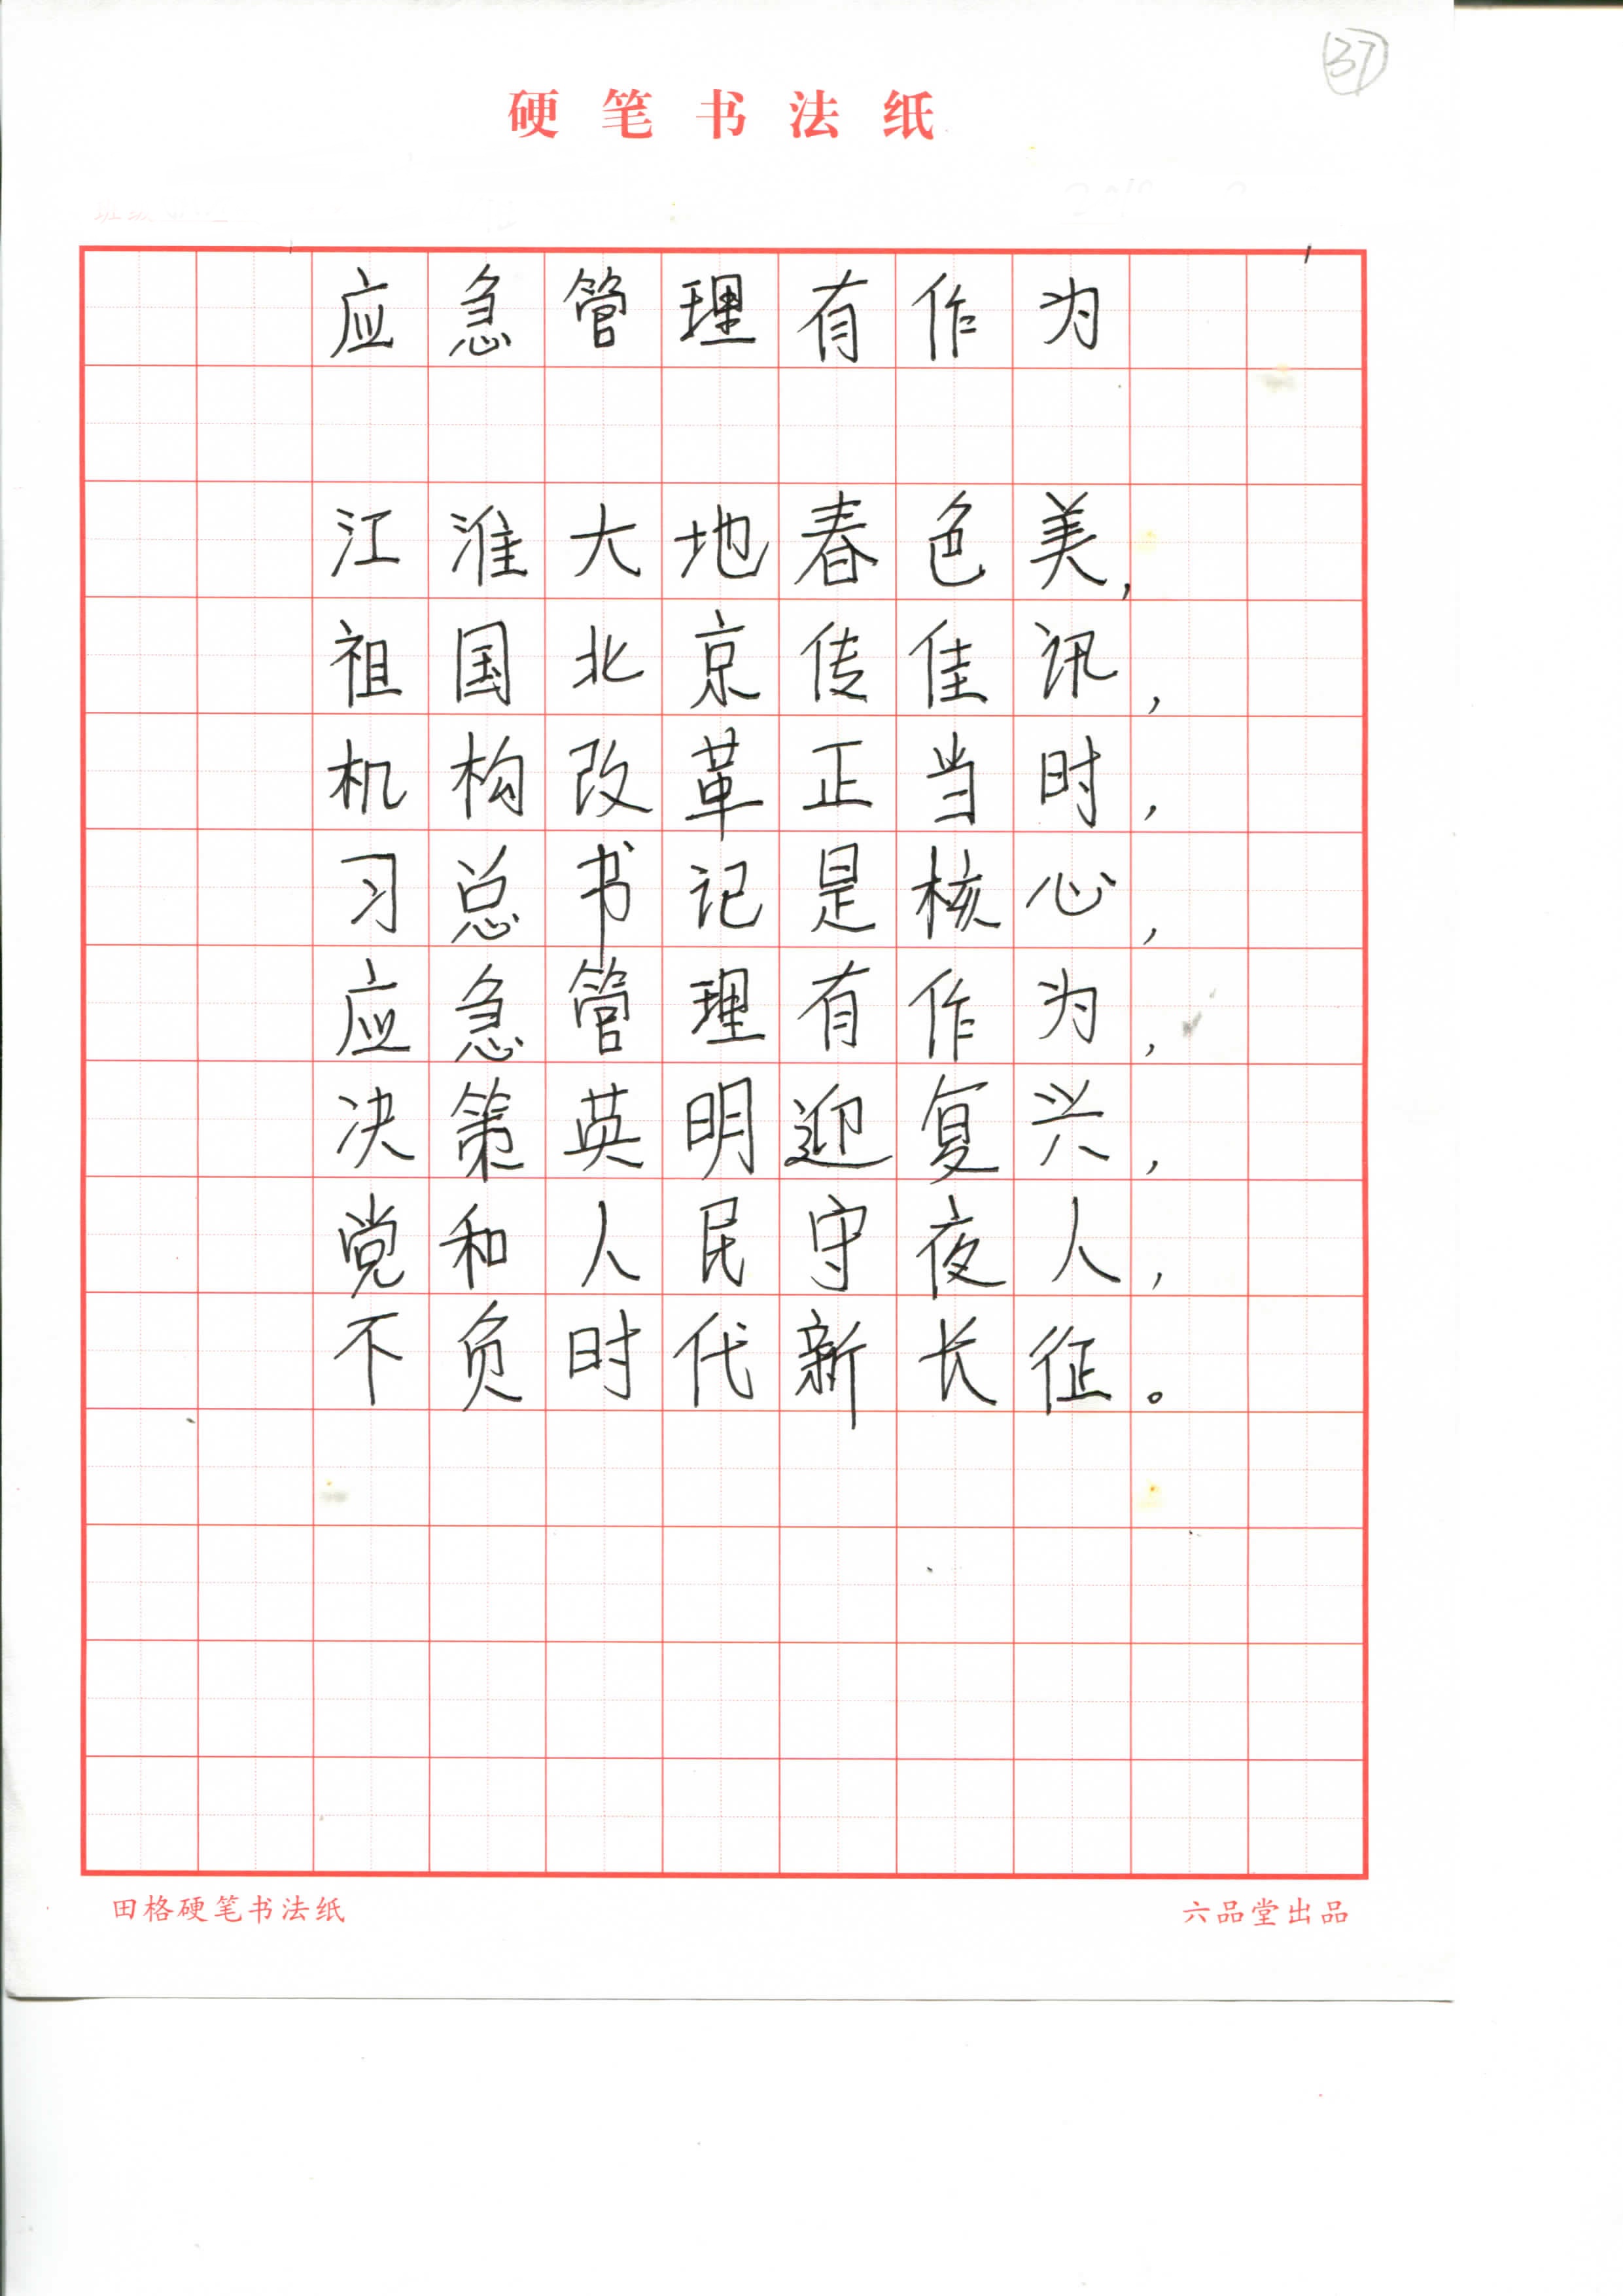 37
硬笔书法纸
应急管理有作为
江淮大地春色美,
祖国北京传佳讯,
机构改革正当时,
习总书记是核心,
应急管理有作为,
决策英明迎复兴,
党和人民守夜人,
不负时代新长征。
田格硬笔书法纸
六品堂出品